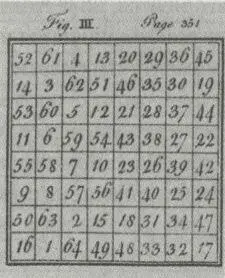 Fig. III Page 351
52 61 4 13 20 29 36 45
14 3 62 51 46 35 30 19
53 60 5 12 21 28 37 44
11 6 59 54 43 38 27 22
55 58 7 10 23 26 39 42
9 8 57 56 41 40 25 24
50 63 2 15 18 31 34 47
16 1 64 49 48 33 32 17